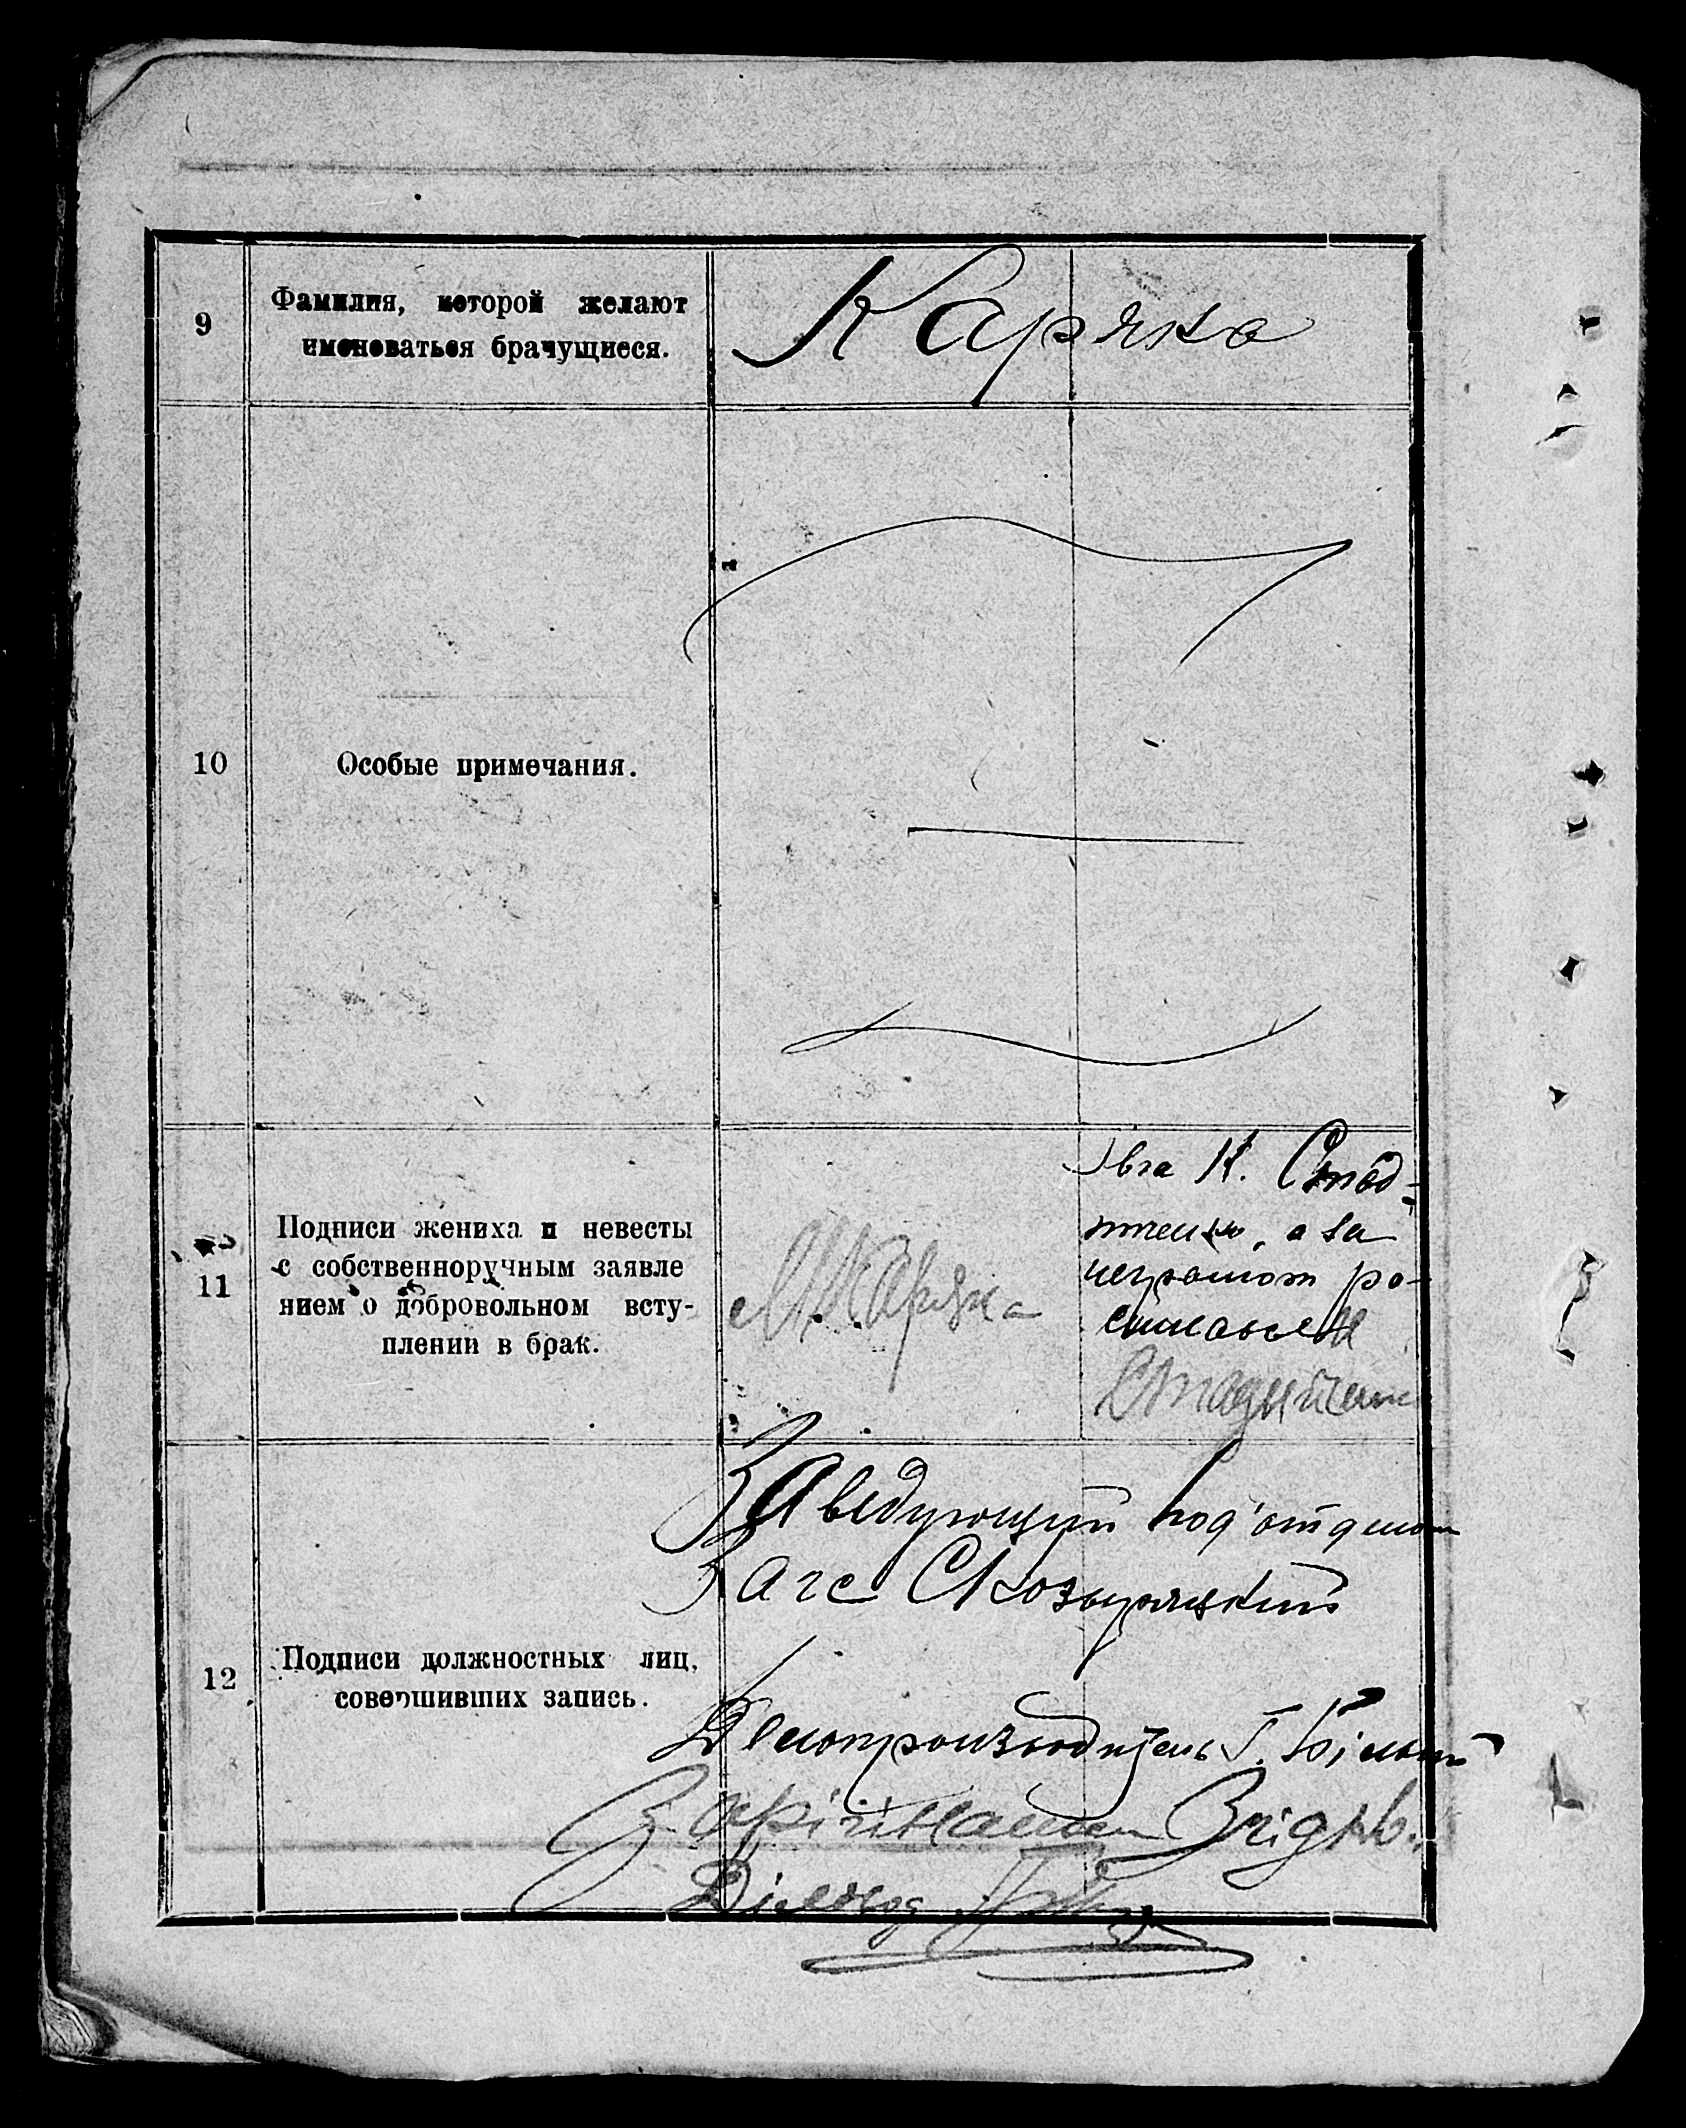 9
Фамилия, которой желают
именоваться брачущиеся.
Каряка
10
Особые примечания.
11
Подписи жениха и невесты
с собственноручным заявле
нием о добровольном всту-
плении в брак.
М Каряка
К. Стад-
, а за
неграмот ро-
12
Подписи должностных лиц,
совершивших запись.
Заведующий под'отделом
Загс
Делопроизводитель Г.
З оригіналом Згідно.
Діловод